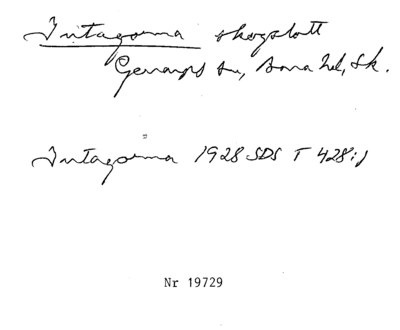 Intagorna skogslott
Genarps sn, Bara hd, Sk.
Intagorna 1928 SDS T 428:1
Nr 19729